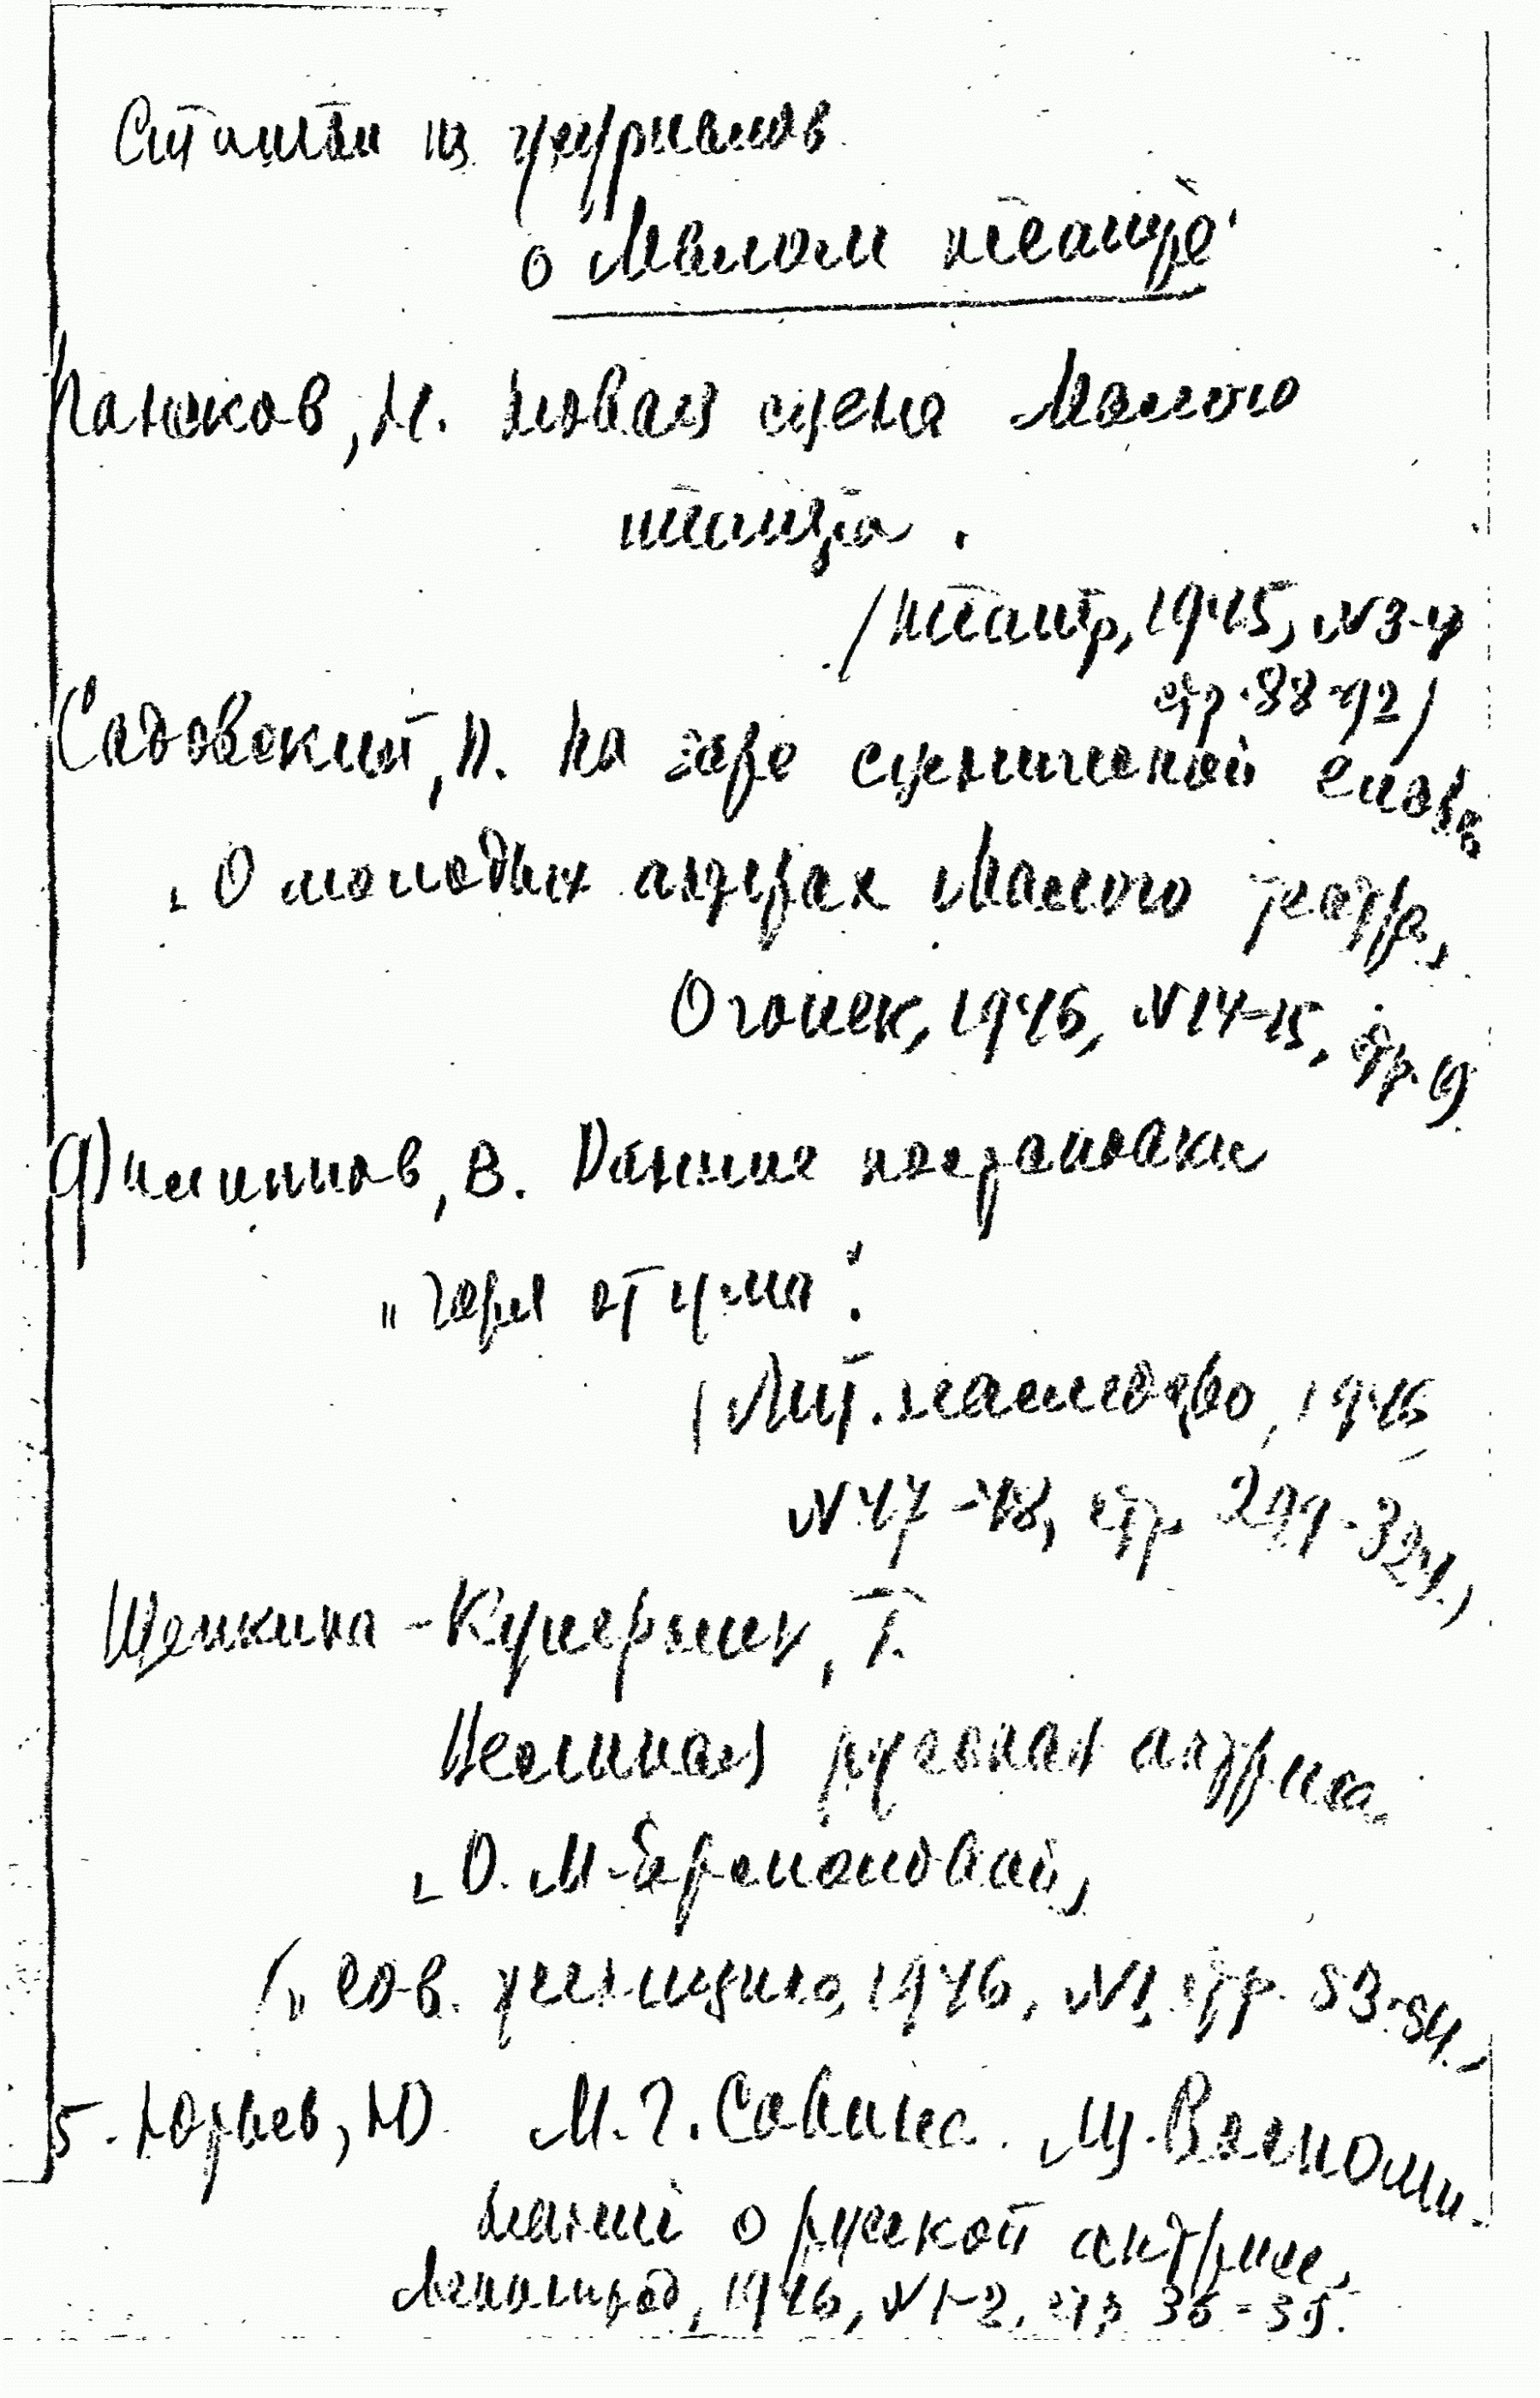 Статьи из журналов
о Малом театре.
Панков, М. Новая сцена Малого
театра.
/Театр, 1945, №3-4
стр. 88-92/
Садовский, П. На заре сценической славы
О молодых актерах Малого театра,
Огонек, 1946, №14-15, стр. 19
Филиппов, В. Ранние постановки
"Горя от ума".
/Лит. наследство, 1946
№47-48, стр. 299-324./
Щепкина-Куперник, Т.
Великая русская актриса.
О. М. Ермоловой,
/"Сов. женщина, 1946, №1, стр. 53-54./
5. Юрьев, Ю. М. Г. Савина. Из Воспоми-
наний о русской актрисе,
Ленинград, 1946, №1-2, стр. 36-39.